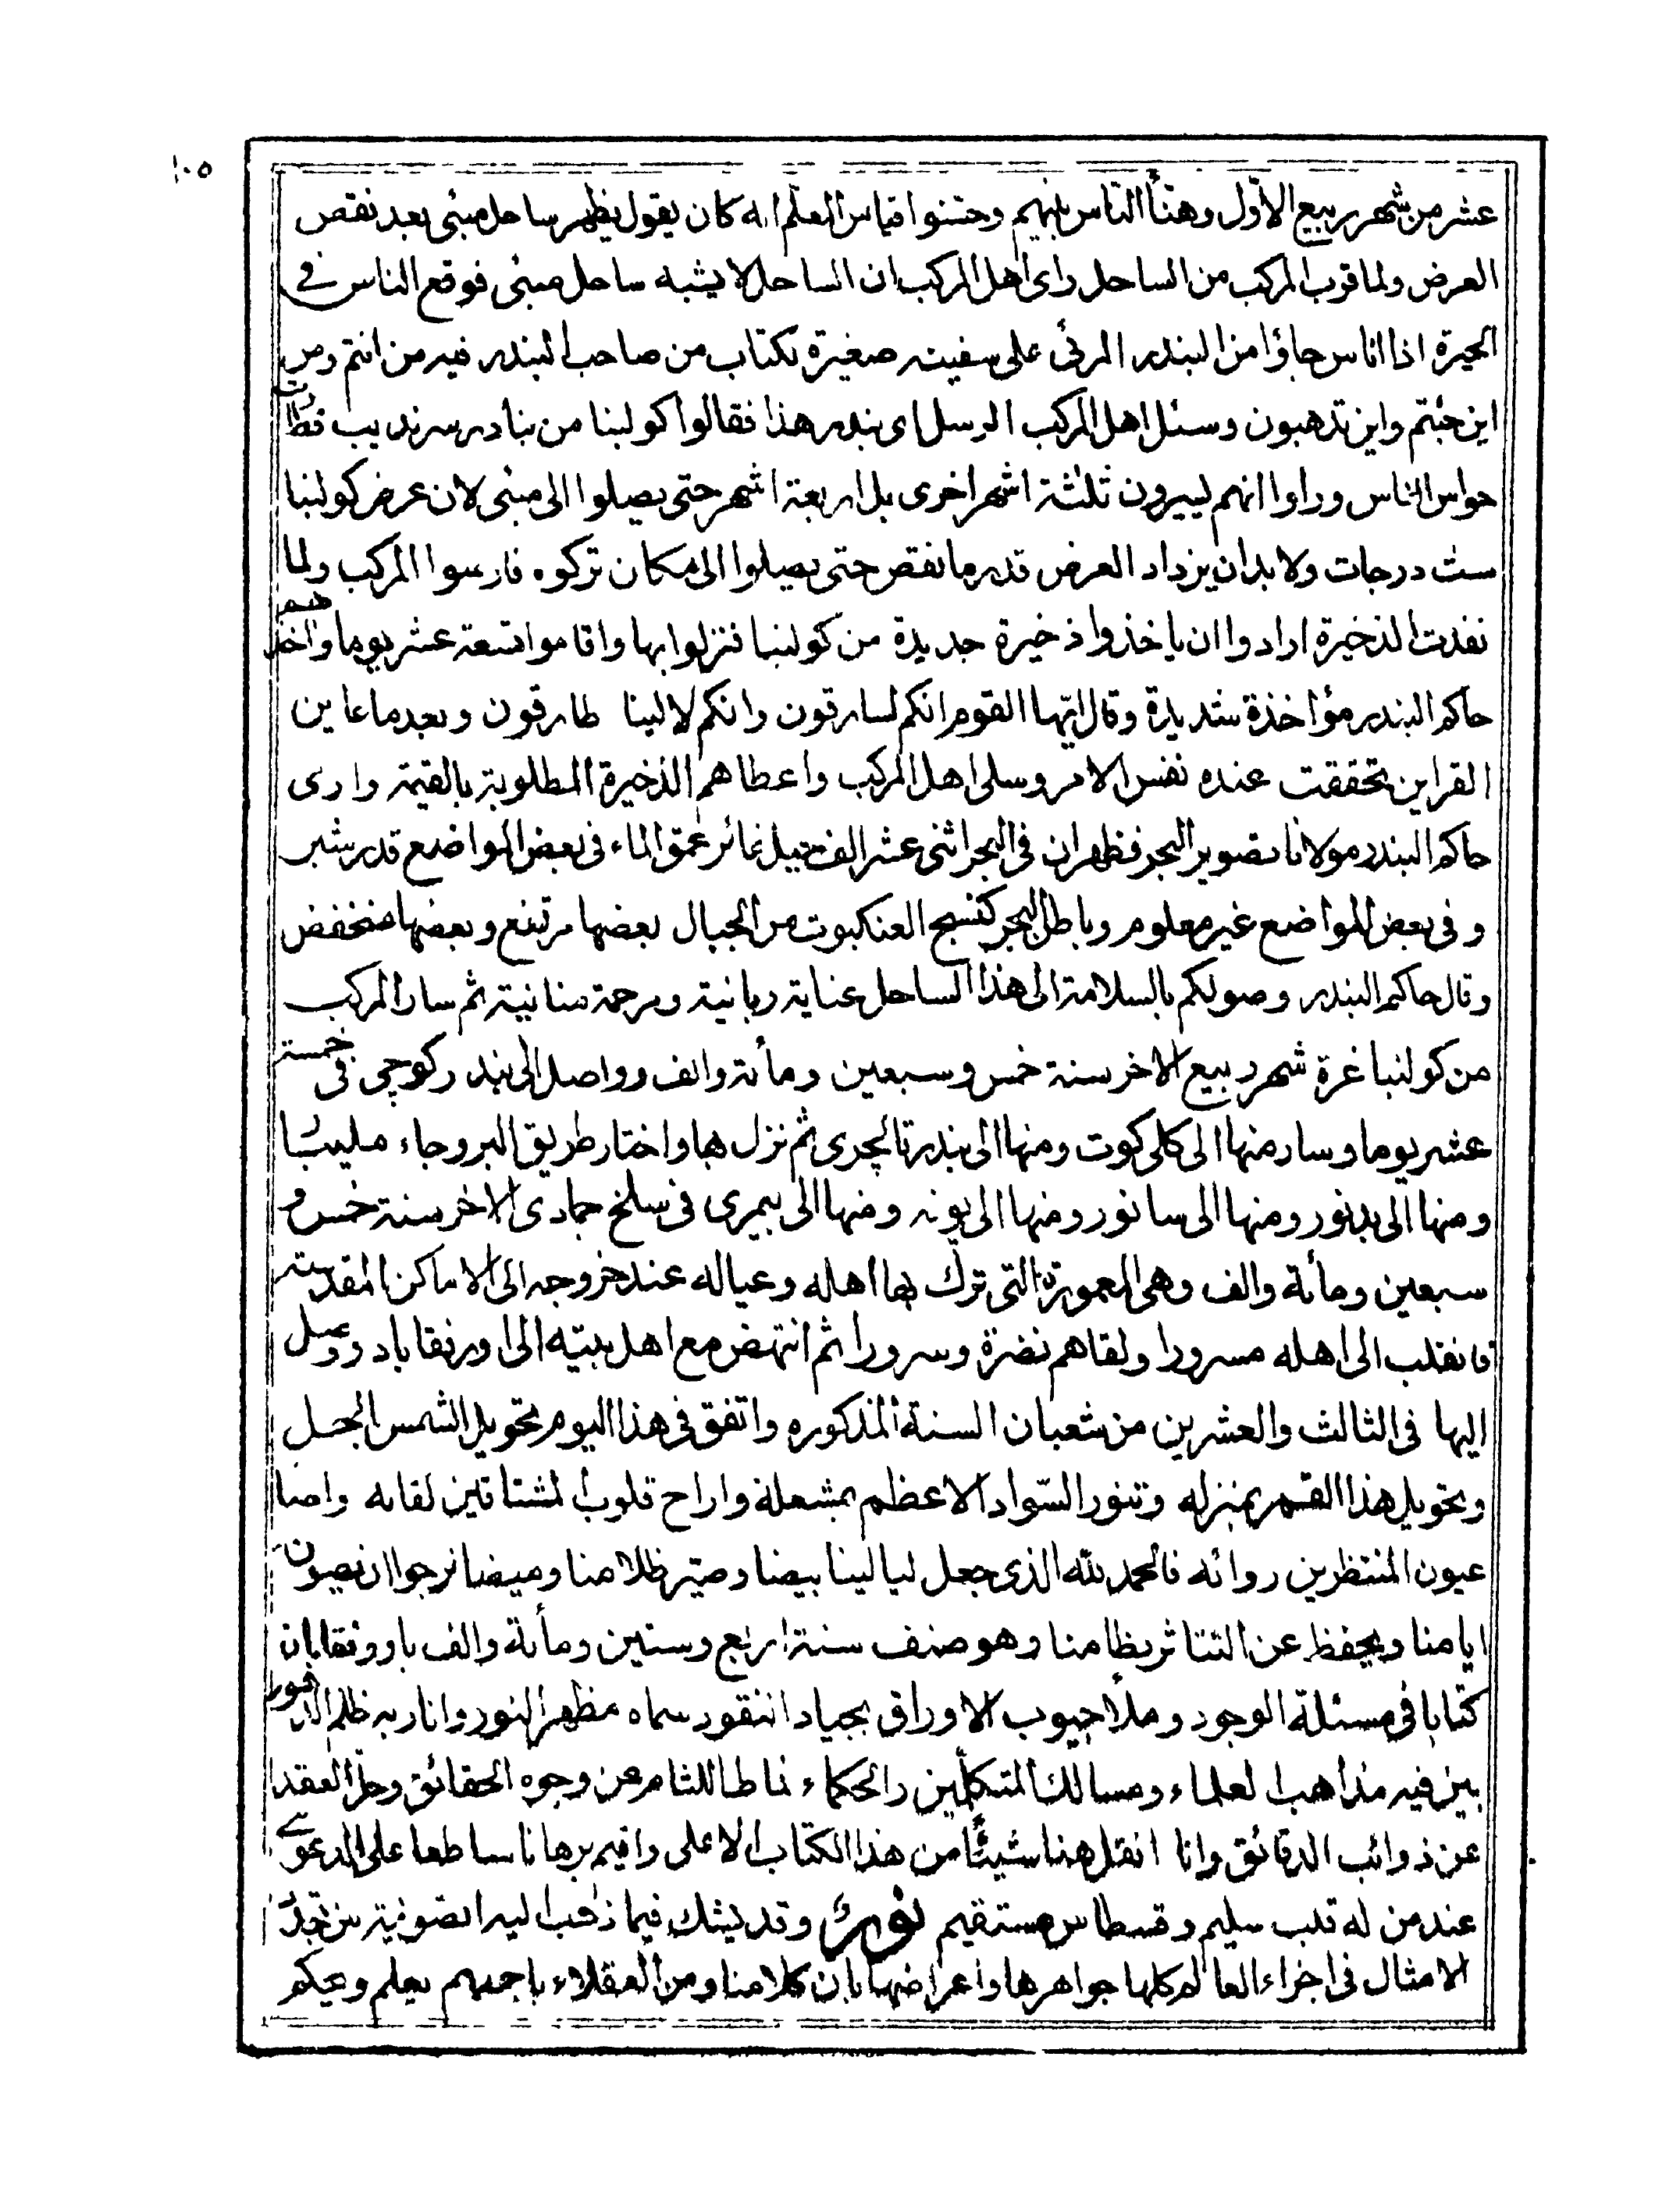 ١٠٥
عشر من شهر ربيع الاوّل وهنأ الناس بينهم وحسّنوا قياس المعلم انه كان يقول يظهر ساحل منبئى بعد نقص
العرض ولما قرب المركب من الساحل راى اهل المركب ان الساحل لا يشبه ساحل منبئى فوقع الناس في
الحيرة اذا اناس جاؤا من البندر المرئى على سفينه صغيرة بكتاب من صاحب البندر فيه من انتم ومن
اين جئتم واين تذهبون وسئل اهل المركب الرسل اى بندر هذا فقالوا كولنبا من بنادر سرنديب فطارت
حواس الناس وراوا انهم يسيرون ثلثة اشهر اخرى بل اربعة اشهر حتى يصلوا الى منبئى لان عرض كولنبا
ست درجات ولا بد ان يزداد العرض قدر ما نقص حتى يصلوا الى مكان تركوه فارسوا المركب ولما
نفدت الذخيرة ارادوا ان ياخذوا ذخيرة جديدة من كولنبا فنزلوا بها واقاموا تسعة عشر يوما واخذهم
حاكم البندر مؤاخذة شديدة وقال ايّها القوم انكم لسارقون وانكم لا لينا طارقون وبعد ما عاين
القراين تحققت عنده نفس الامر وسلى اهل المركب واعطاهم الذخيرة المطلوبة بالقيمة وارى
حاكم البندر مولانا تصوير البحر فظهر ان في البحر اثنى عشر الف جبيل غائر عمق الماء في بعض المواضع قدر شبر
وفى بعض المواضع غير معلوم وباطن البحر كنسج العنكبوت من الجبال بعضها مرتفع وبعضها منخفض
وقال حاكم البندر وصولكم بالسلامة الى هذا الساحل عناية ربانية ورحمة منانية ثم سار المركب
من كولنبا غرة شهر ربيع الاخر سنة خمس وسبعين ومأته والف وواصل الى بندر كوچى فى خمسة
عشر يوما وسار منها الى كلى كوت ومنها الى بندر تالچرى ثم نزل بها واختار طريق البر وجاء مليبتنا
ومنها الى بدنور ومنها الى سانور ومنها الى پونه ومنها الى بيمرى فى سلخ جمادى الاخر سنة خمس و
سبعين ومأتة والف وهى المعمورة التى ترك بها اهله وعياله عند خروجه الى الاماكن المقدسة
فانقلب الى اهله مسرورا ولقاهم نضرة وسرورا ثم انتهض مع اهل بيته الى اورنقاباد ووصل
اليها فى الثالث والعشرين من شعبان السنة المذكوره واتفق فى هذا اليوم تحويل الشمس الحمل
وتحويل هذا القمر بمنزله وتنور السّواد الاعظم بمشعلة واراح قلوب المشتاقين لقائه واضا
عيون المنتظرين روائه فالحمد لله الذى جعل ليالينا بيضا وصيّر ظلامنا وميضا نرجوا ان يصون
ايامنا ويحفظ عن التناثر نظامنا وهو صنف سنة اربع وستين ومأتة والف باورنقاباد
كتابا فى مسئلة الوجود وملأ جيوب الاوراق بجياد النقود سماه مظهر النور وانار به ظلم الديجور
بين فيه مذاهب العلماء ومسالك المتكلّمين والحكماء فاطا اللثام عن وجوه الحقائق وحل العقد
عن ذوائب الدقائق وانا انقل هنا شيئًا من هذا الكتاب الاعلى واقيم برهانا ساطعا على المدعوى
عند من له قلب سليم وقسطاس مستقيم نور وقد يشك فيما ذهب اليه الصوفية من تجدّد
الامثال فى اجزاء العالم كلها جواهرها واعراضها بان كلامنا ومن العقلاء باجمعهم يعلم ويحكم